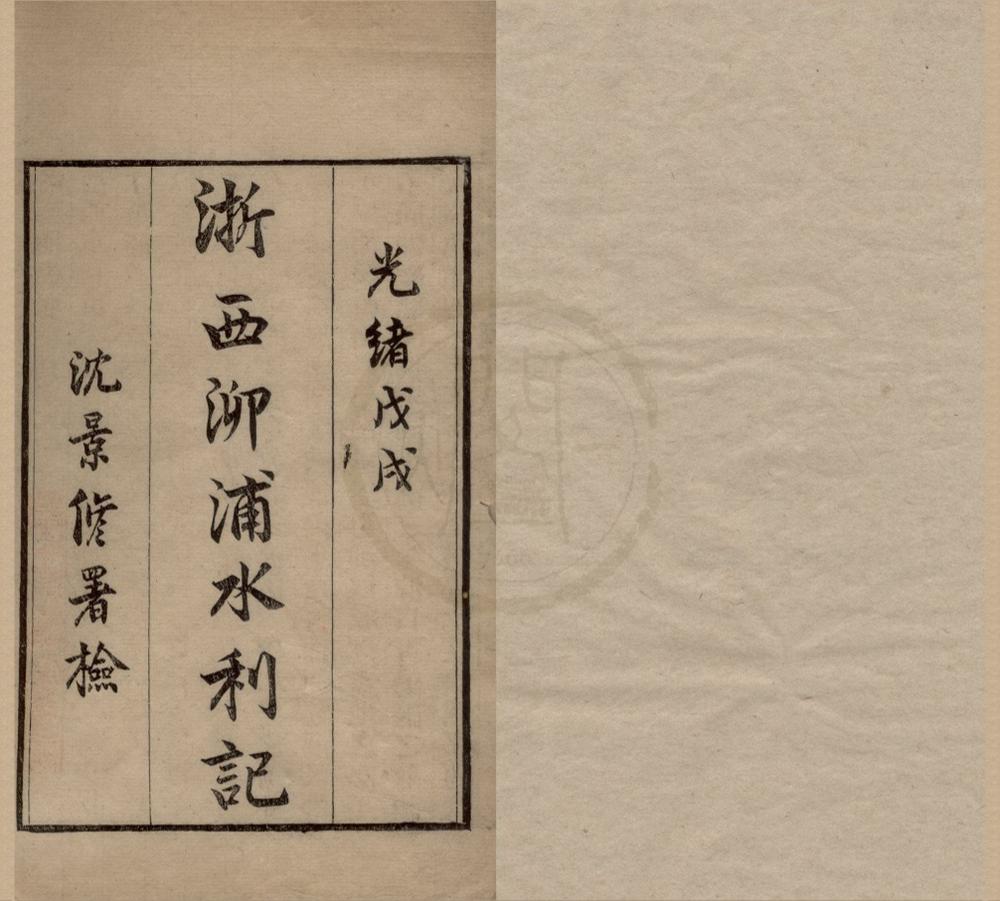 光緒戊戌
浙西泖浦水利記
沈景修署檢